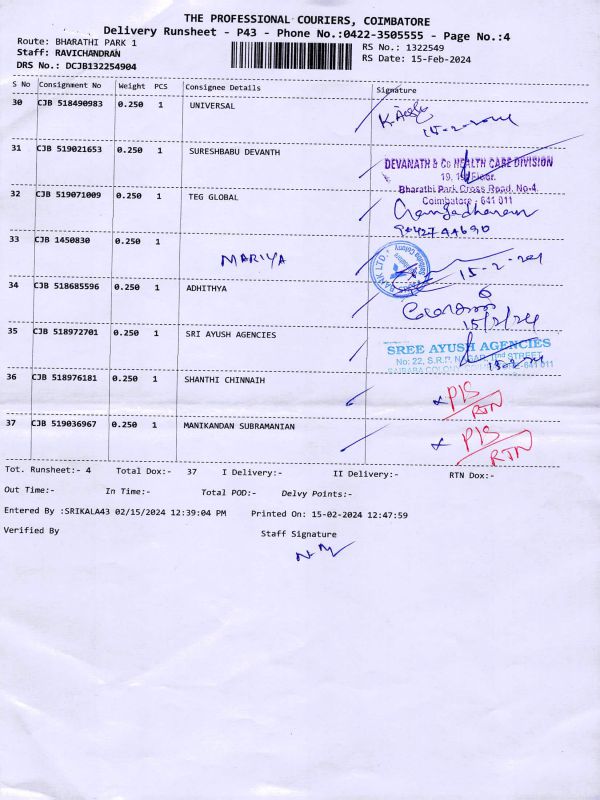 THE PROFESSIONAL COURIERS, COIMBATORE
Delivery Runsheet - P43 - Phone No.:0422-3505555 - Page No.:4
Route: BHARATHI PARK 1
RS No.: 1322549
Staff: RAVICHANDRAN
RS Date: 15-Feb-2024
DRS No.: DCJB132254904
S No Consignment No Weight PCS Consignee Details Signature
30 CJB 518490983 0.250 1 UNIVERSAL
15-2-2024
31 CJB 519021653 0.250 1 SURESHBABU DEVANTH
DEVANATH & Co HEALTH CARE DIVISION
19, 1st Floor,
Bharathi Park Cross Road, No-4,
Coimbatore - 641 011
32 CJB 519071009 0.250 1 TEG GLOBAL
Gangadharan
9042794690
33 CJB 1450830 0.250 1
MARIYA
BANK LTD.
15-2-2024
34 CJB 518685596 0.250 1 ADHITHYA
15/2/24
35 CJB 518972701 0.250 1 SRI AYUSH AGENCIES
SREE AYUSH AGENCIES
No: 22, S.R.P. NAGAR, IInd STREET,
SAIBABA COLONY, -641 011
36 CJB 518976181 0.250 1 SHANTHI CHINNAIH
RTN
37 CJB 519036967 0.250 1 MANIKANDAN SUBRAMANIAN
RTN
Tot. Runsheet:- 4 Total Dox:- 37 I Delivery:- II Delivery:- RTN Dox:-
Out Time:- In Time:- Total POD:- Delvy Points:-
Entered By :SRIKALA43 02/15/2024 12:39:04 PM Printed On: 15-02-2024 12:47:59
Verified By Staff Signature